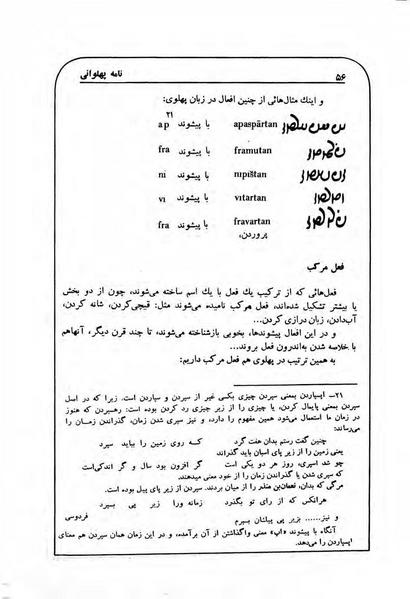 ۵۶ نامه پهلوانی
و اینك مثال‌هائی از چنین افعال در زبان پهلوی:
apaspārtan با پیشوند ap ۲۱
framutan با پیشوند fra
nipištan با پیشوند ni
vitartan با پیشوند vi
fravartan با پیشوند fra
پروردن،
فعل مرکب
فعل‌هائی که از ترکیب یك فعل با یك اسم ساخته می‌شوند، چون از دو بخش
یا بیشتر تشکیل شده‌اند، فعل مرکب نامیده می‌شوند مثل: قیچی‌کردن، شانه کردن،
آب‌دادن، زبان درازی کردن...
و در این افعال پیشوندها، بخوبی بازشناخته می‌شوند، تا چند قرن دیگر، آنهاهم
با خلاصه شدن به‌اندرون فعل بروند...
به همین ترتیب در پهلوی هم فعل مرکب داریم:
۲۱– اپسپاردن بمعنی سپردن چیزی بکسی غیر از سپردن و سپاردن است. زیرا که در اصل
سپردن بمعنی پایمال کردن، یا چیزی را از زیر چیزی رد کردن بوده است: رهسپردن که هنوز
در زمان ما استعمال می‌شود همین مفهوم را دارد، و نیز سپری شدن زمان، گذراندن زمان را
می‌رساند:
چنین گفت رستم بدان هفت گرد که روی زمین را بباید سپرد
یعنی زمین را از زیر پای اسبان باید گذراند
چو شد اسپری، روز هر دو یکی است گر افزون بود سال و گر اندکی‌است
که سپری شدن یا گذراندن زمان را از خود معنی میدهند.
مرگی که بدان، نعمان‌بن منذر را از میان بردند. سپردن از زیر پای پیل بوده است.
هرانکس که از رای تو بگذرد زمانه ورا زیر پی بسپرد
و نیز...... بزیر پی پیلتان بسپرم فردوسی
آنگاه با پیشوند «اپ» معنی واگذاشتن از آن برآمده، و در این زمان همان سپردن هم معنای
اپسپاردن را می‌دهد.